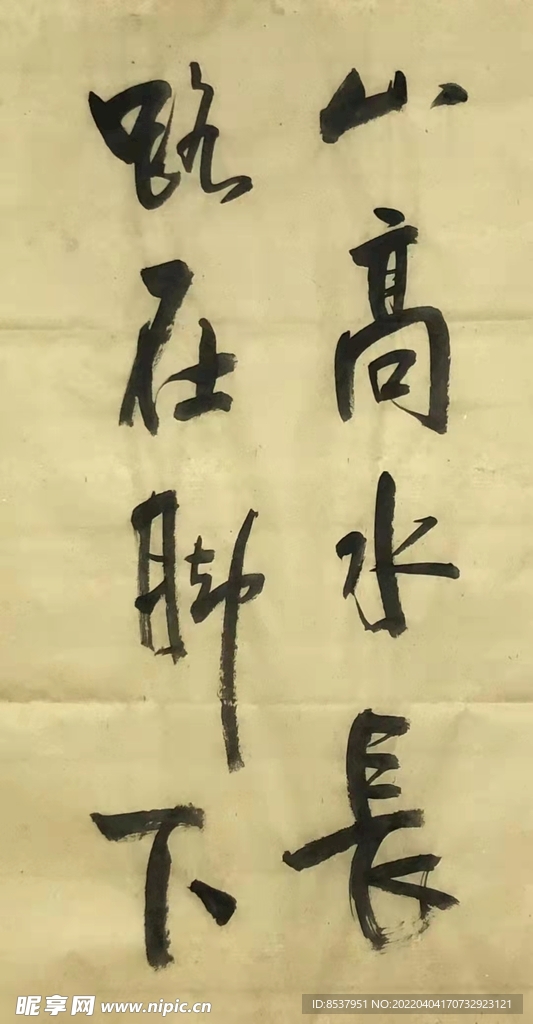 山高水長
路在脚下
昵享网 www.nipic.cn
ID:8537951 NO:20220404170732923121